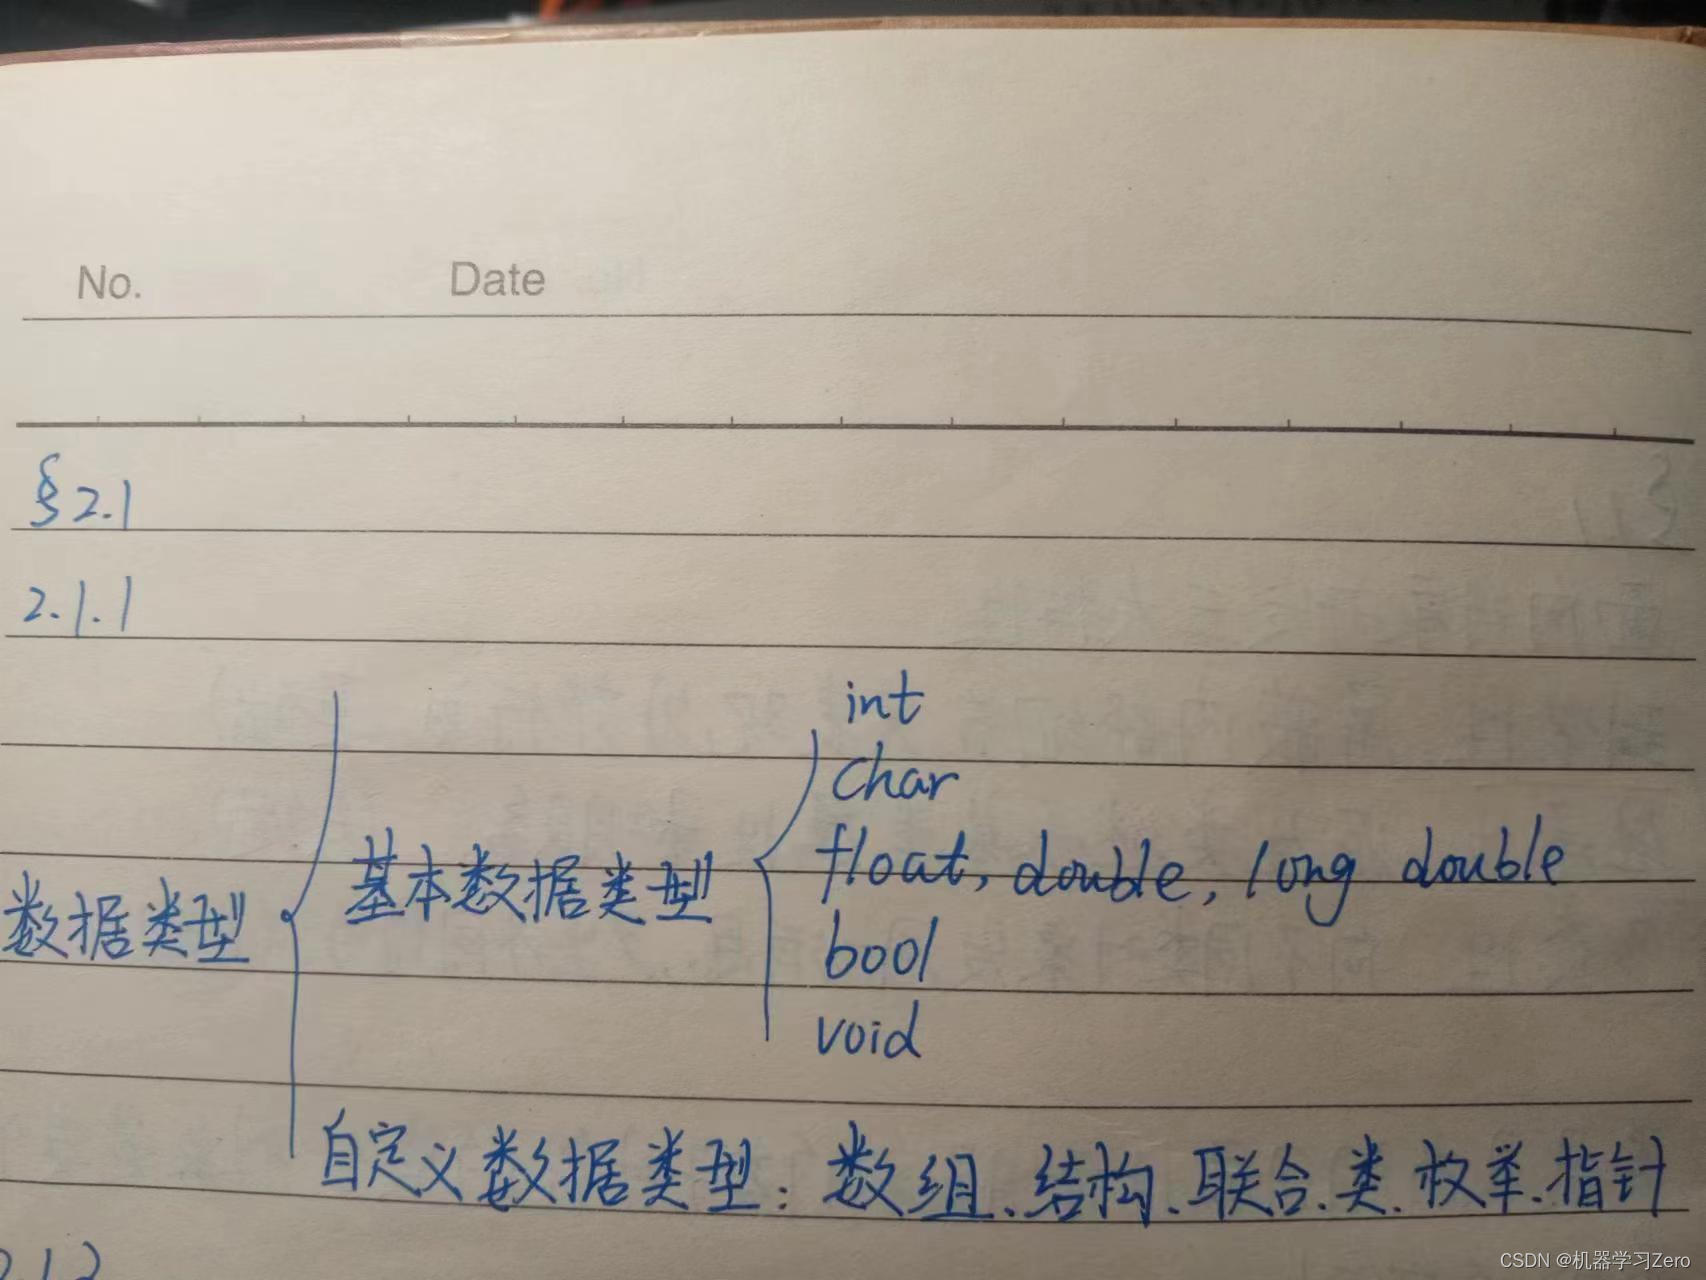 No. Date
§2.1
2.1.1
int
char
数据类型 基本数据类型 float, double, long double
bool
void
自定义数据类型：数组、结构、联合、类、枚举、指针
2.1.2
CSDN @机器学习Zero